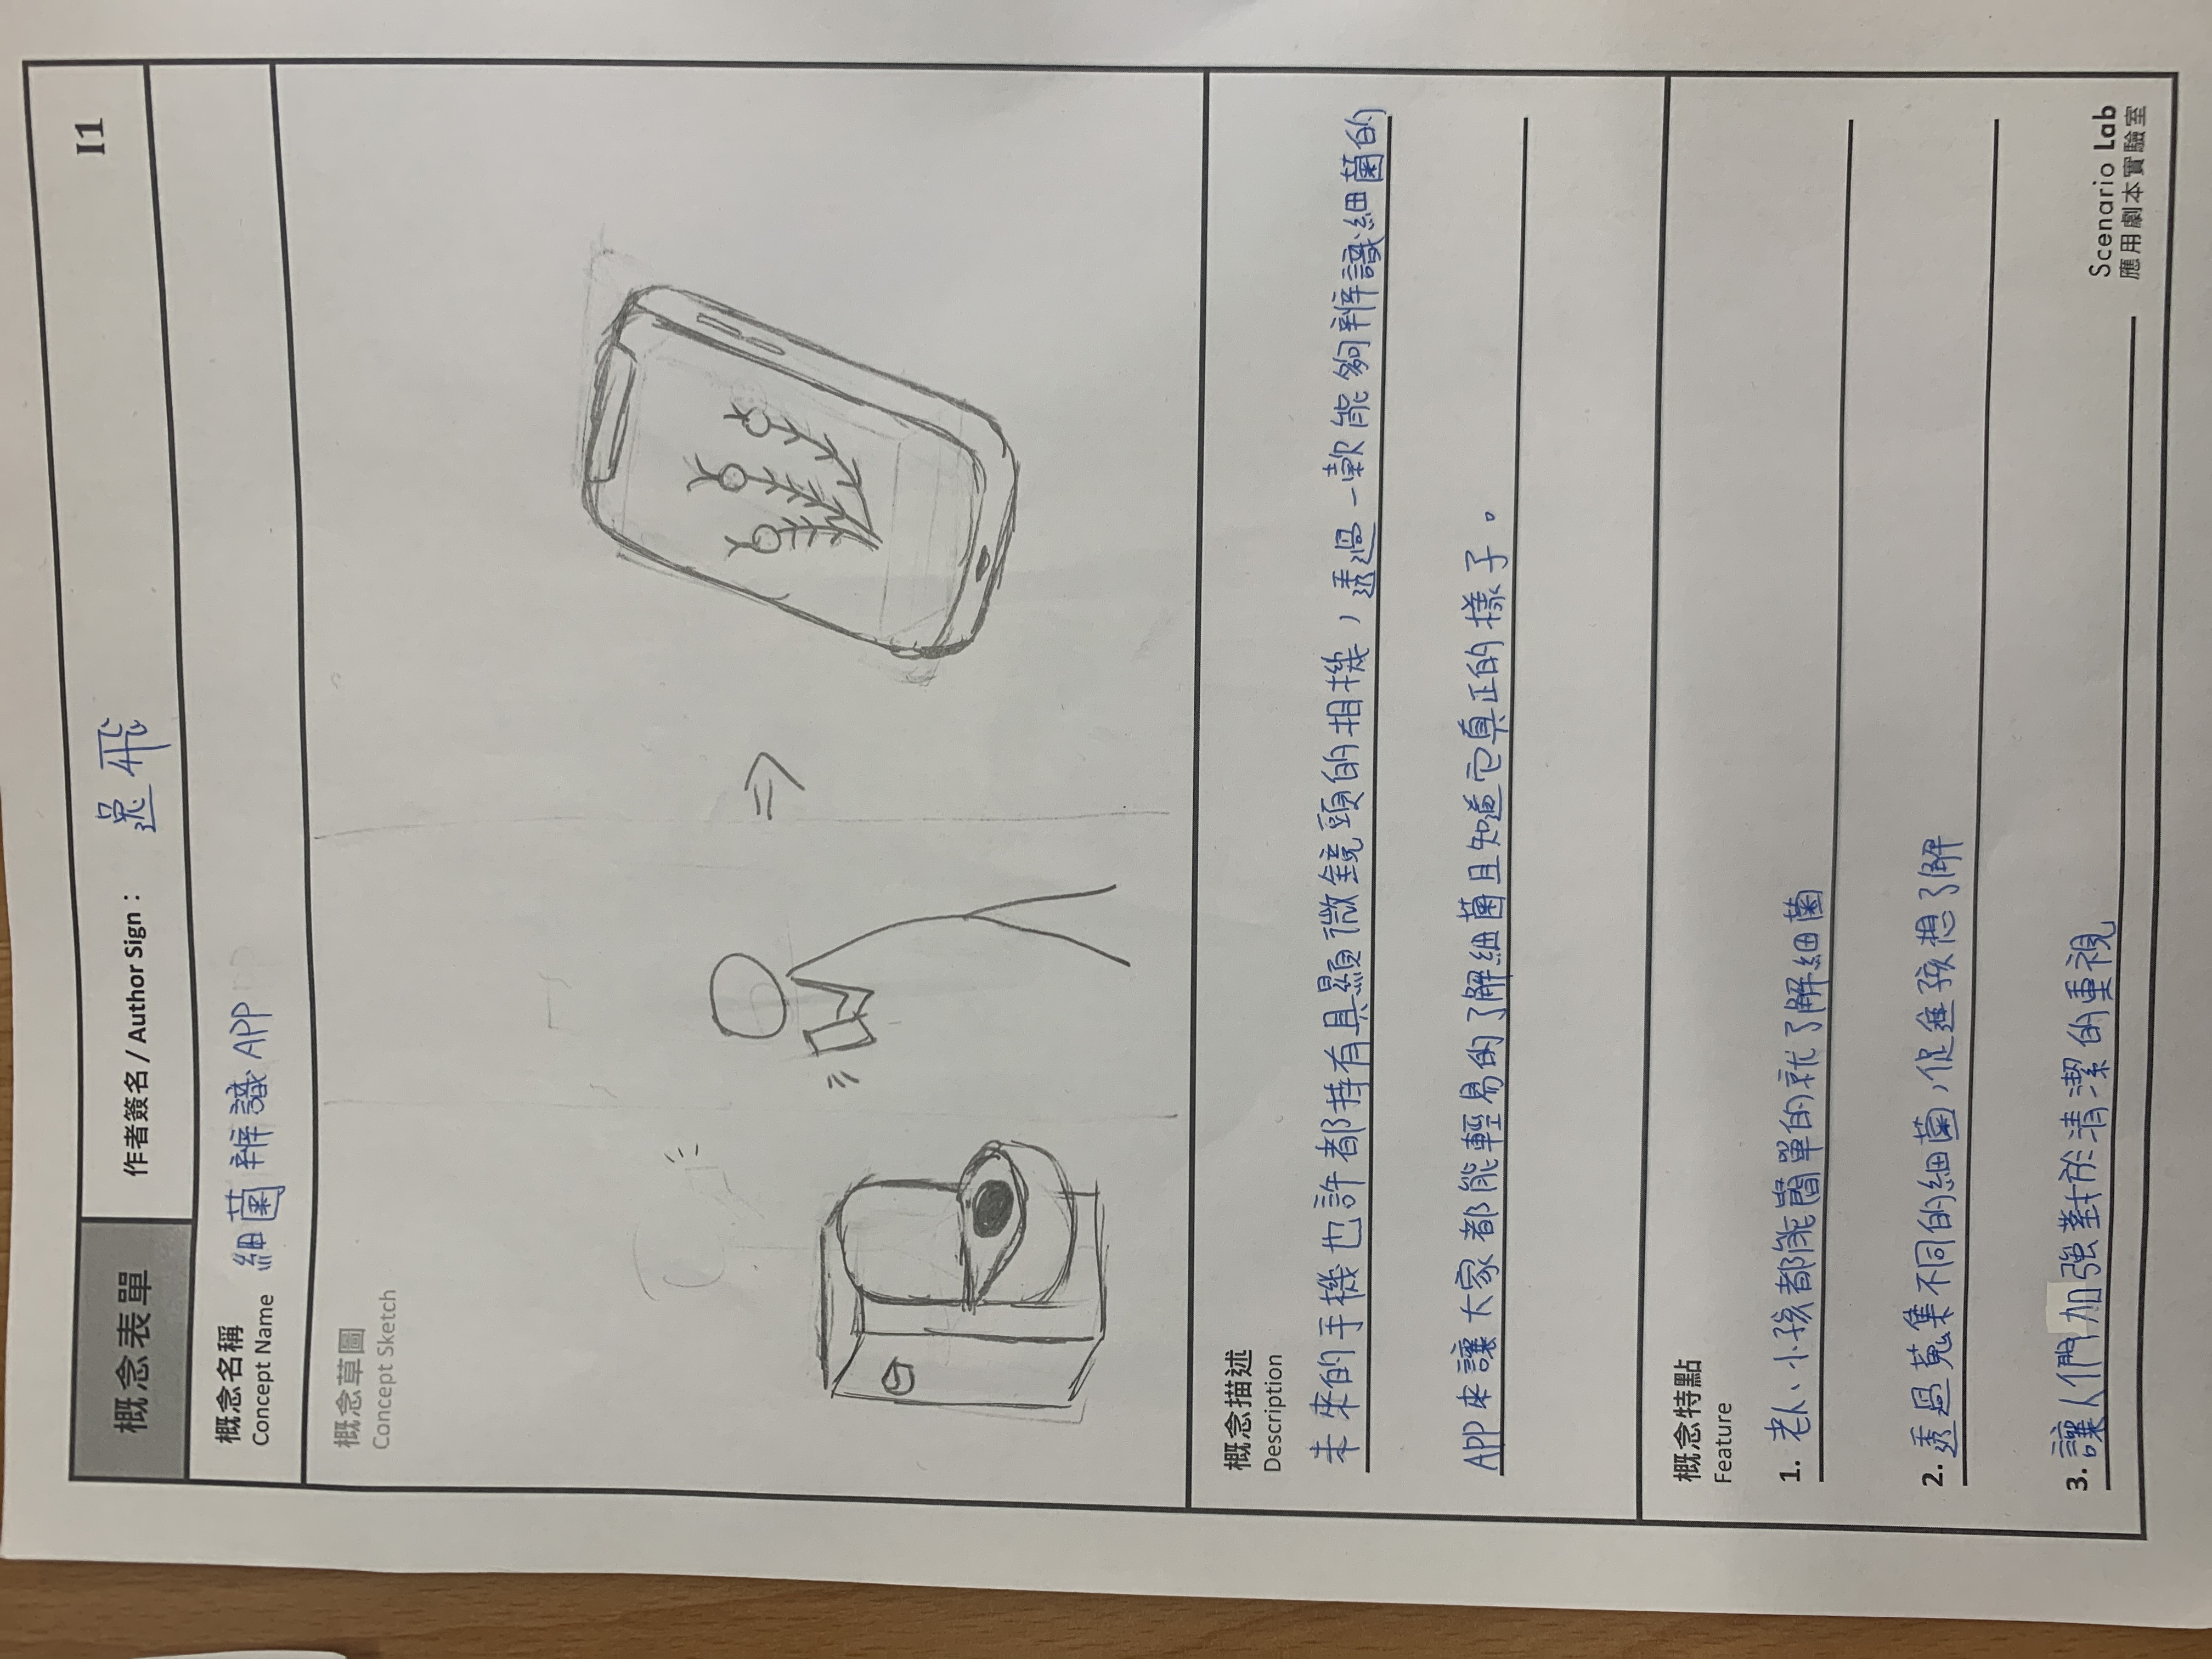 I1
概念表單
作者簽名 / Author Sign：逸飛
概念名稱
Concept Name
細菌辨識APP
概念草圖
Concept Sketch
概念描述
Description
未來的手機也許都持有具顯微鏡頭的相機，透過一款能夠辨識細菌的
APP來讓大家都能輕易的了解細菌且知道它真正的樣子。
概念特點
Feature
1. 老人、小孩都能簡單的就了解細菌
2. 透過蒐集不同的細菌，促進孩想了解
3. 讓人們加強對於清潔的重視
Scenario Lab
應用劇本實驗室